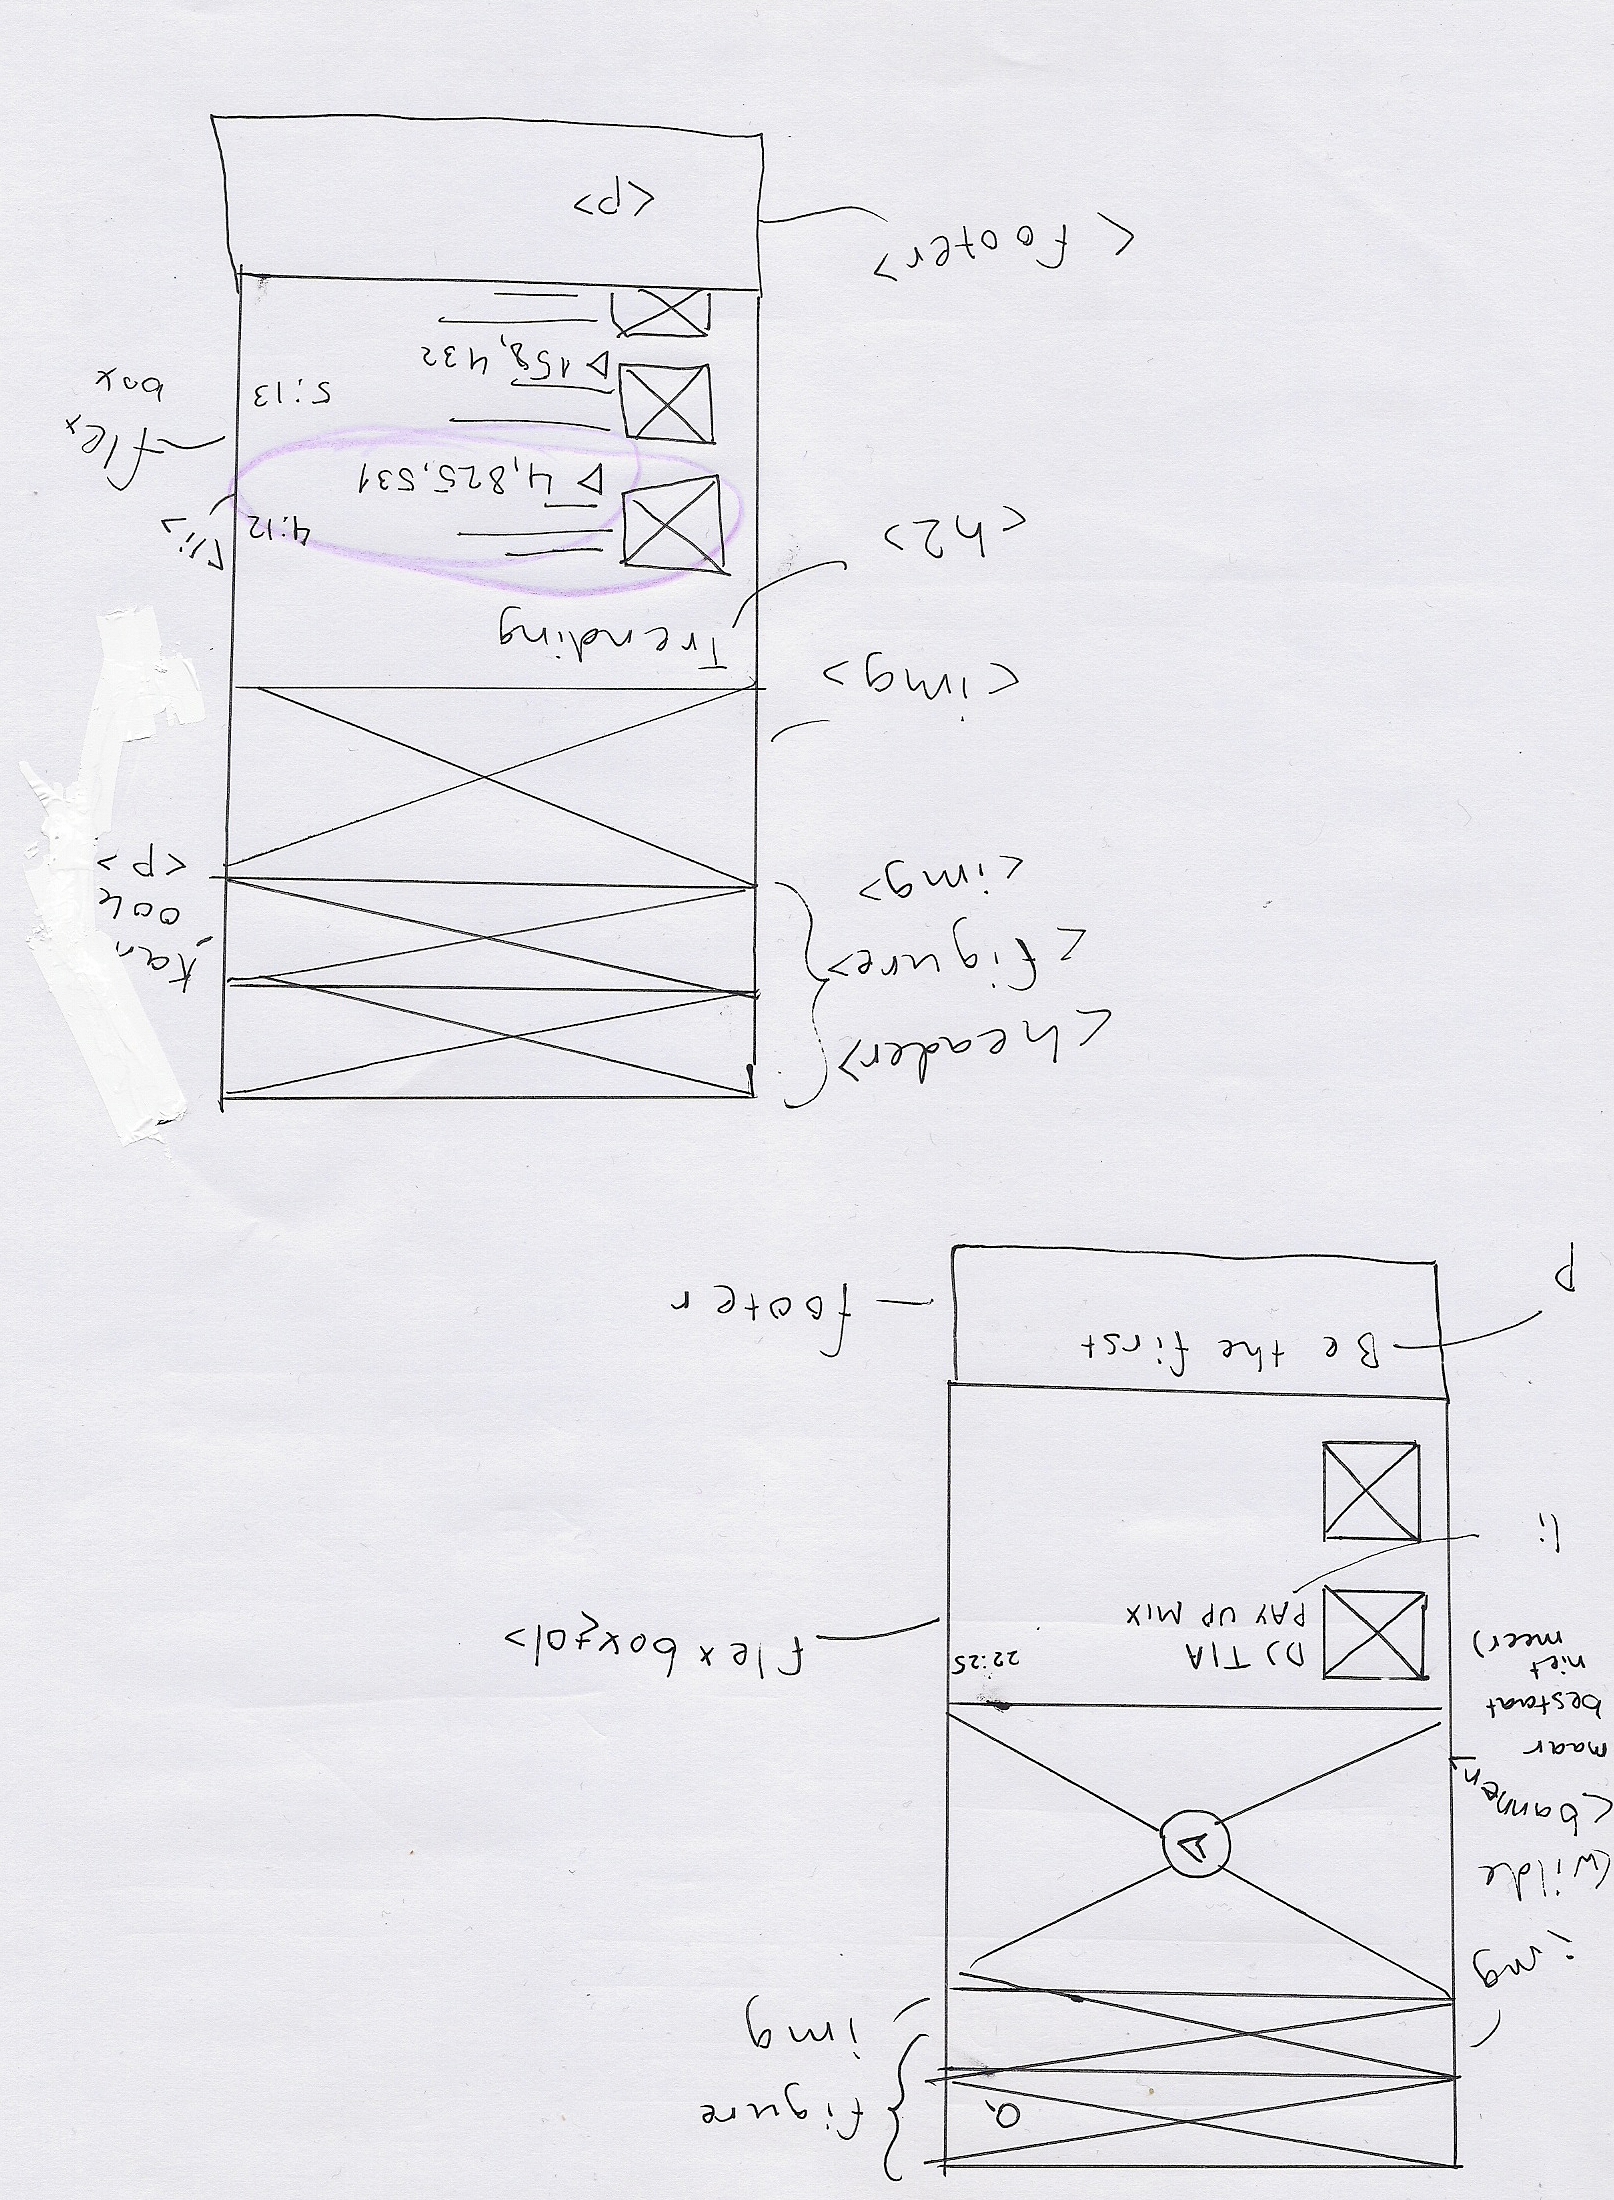 figure
img
img
(wilde
<banner>
maar
bestaat
niet
meer)
DJ TIA
22:25
PAY UP MIX
flexbox <ol>
li
Be the first
p
footer
<header>
<figure>
<img>
Kan
ook
<p>
<img>
Trending
<h2>
4:12
<li>
4,825,531
flex
box
5:13
158,432
<footer>
<p>